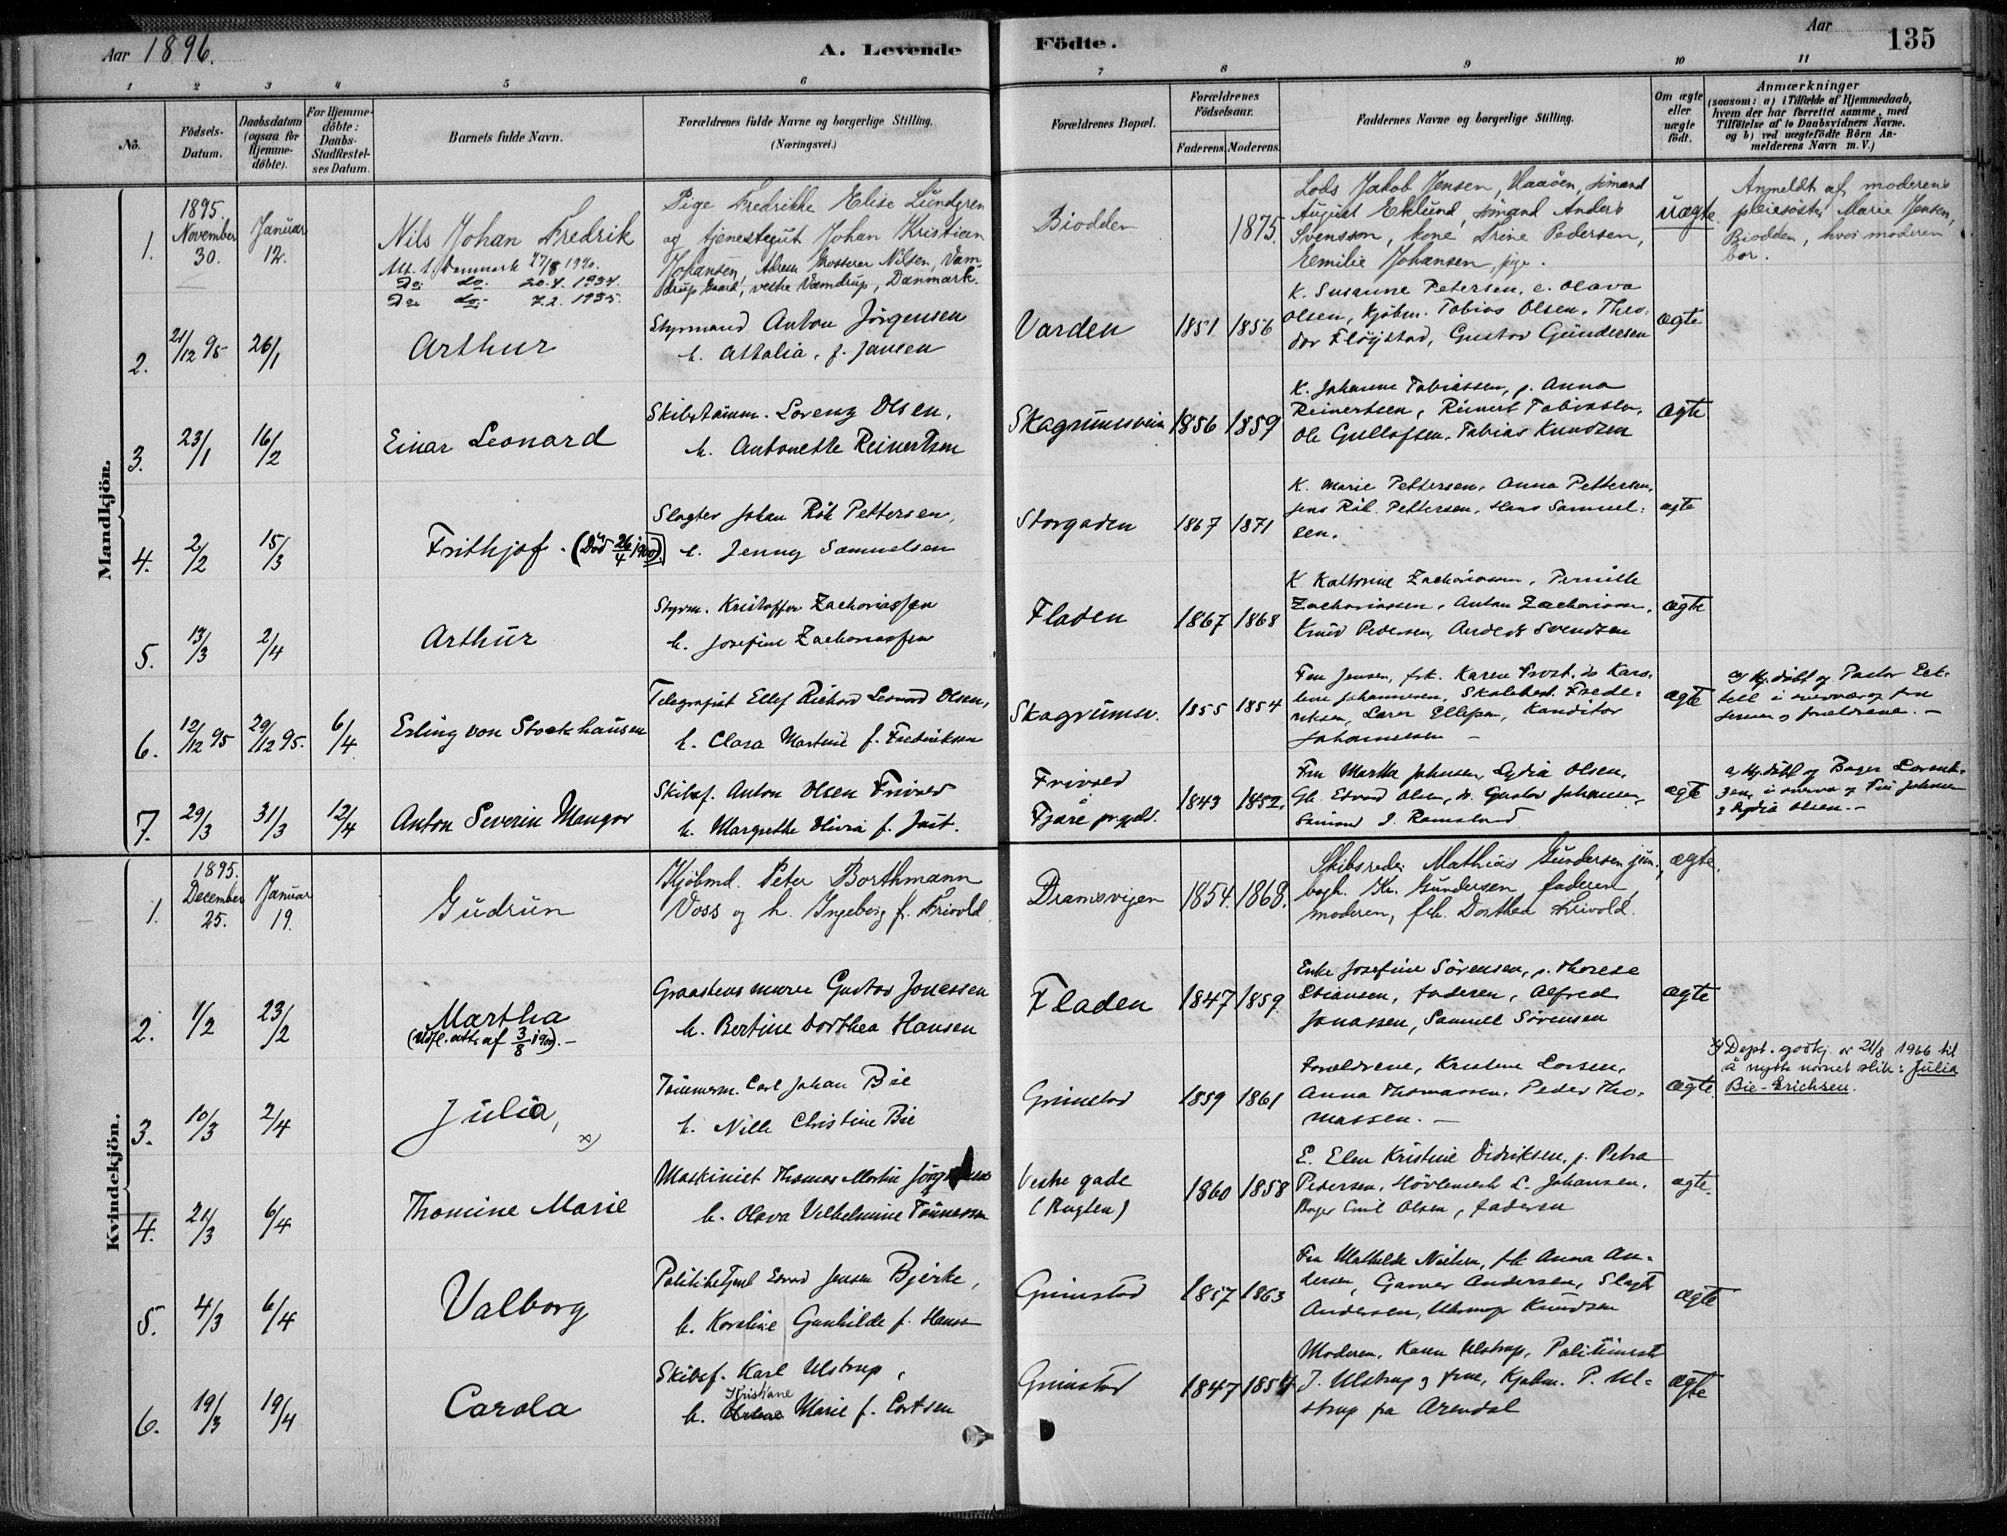 Aar 1896. A. Levende Födte. Aar 135
1 2 3 4 5 6 7 8 9 10 11
No.
Födsels-Datum.
Daabsdatum (ogsaa for Hjemme-döbte).
For Hjemme-döbte: Daabs-Stadfæstel-ses Datum.
Barnets fulde Navn.
Forældrenes fulde Navne og borgerlige Stilling. (Næringsvei.)
Forældrenes Bopæl.
Forældrenes Födselsaar.
Faderens. Moderens.
Faddernes Navne og borgerlige Stilling.
Om ægte eller uægte födt.
Anmærkninger
(saasom: a) i Tilfælde af Hjemmedaab,
hvem der har forrettet samme, med
Tilföielse af to Daabsvidners Navne.
og b) ved uægtefödte Börn An-
melderens Navn m. V.)
Mandkjön.
1. 1895. November 30. Januar 12.
Nils Johan Fredrik
Att. t. Danmark 27/8 1920.
Do. do. 20.4.1934.
Do. do. 7.2.1935.
Pige Fredrikke Elise Lundgren
og tjenestegut Johan Kristian
Johansen, Adresse Nilsen, Vam-
drup Gaard, vestre Vamdrup, Danmark.
Biodden 1875.
Lods Jakob Jensen, Haaöen, sömand
August Eklund, sömand Anders
Svensson, kone Trine Pedersen,
Emilie Johansen, pige.
uægte
Anmeldt af moderens
pleiesöster Marie Jensen,
Biodden, hvor moderen
bor.
2. 21/12 95 26/1 Arthur
Styrmand Anton Jörgensen
h. Attalia, f. Jansen
Varden 1851 1856
K. Susanne Petersen, e. Olava
Olsen, Kjöbm. Tobias Olsen, Theo-
dor Flöystad, Gustav Gundersen
ægte
3. 23/1 16/2 Einar Leonard
Skibstömm. Lorenz Olsen,
h. Antonette Reinertsen
1856 1859
K. Johanne Tobiassen, p. Anna
Reinertsen, Reinert Tobiassen,
Ole Gullofsen, Tobias Knudsen
ægte
4. 2/2 15/3 Frithjof. (Död 26/4 1900).
Slagter Johan Pettersen,
h. Jenny Samuelsen
Storgaden 1867 1871
K. Marie Pettersen, Anna Pettersen,
Jens Pettersen, Hans Samuel-
sen.
ægte
5. 13/3 2/4 Arthur
Styrm. Kristoffer Zachariassen
h. Josefine Zachariassen
Fladen 1867 1868
K. Kathrine Zachariassen, Pernille
Zachariassen, Anton Zachariassen,
Knud Pedersen, Anders Svendsen
ægte
6. 12/12 95 29/12 95. 6/4 Erling von Stockhausen
Telegrafist Ellef Richard Leonard Olsen,
h. Clara Martine f. Fredriksen
1855 1854
Fru Jensen, frk. Karen Frost, do Karo-
line Johannesen, Skolebest. Frede-
riksen, Lærer Ellefsen, Kanditor
Johannesen
ægte
Hj.döbt af Pastor
i overvær af fru
Jensen og forældrene.
7. 29/3 31/3 12/4 Anton Severin Mangor
Skibsf. Anton Olsen Frivold
h. Margrethe Olivia f. Just.
Frivold
Fjære pr.gjeld 1843 1852.
Fru Martha Johnsen, Lydia Olsen,
Edvard Olsen, do. Gustav Johansen,
Sömand J. Ramsland
ægte
Hj.döbt af Bager Lorent-
zen i overvær af Fru Johnsen
og Lydia Olsen.
Kvindekjön.
1. 1895. December 25. Januar 19. Gudrun
Kjöbmd. Peter Borthmann
Voss og h. Ingeborg f. Frivold
Dramsvigen 1854. 1868.
Skibsreder Mathias Gundersen jun.,
bogh. Kr. Gundersen, faderen,
moderen, frk. Dorthea Frivold.
ægte.
2. 1/2 23/2 Martha
(Udfl. att. af 3/8 1900).
Graastensmurer Gustav Jonassen
h. Bertine Dorthea Hansen
Fladen 1847 1859
Enke Josefine Sörensen, p. Therese
Stiansen, faderen, Alfred
Jonassen, Samuel Sörensen
ægte
3. 10/3 2/4 Julia, x)
Tömmerm. Carl Johan Bie
h. Nille Christine Bie
Grimstad 1859 1861
Forældrene, Kristine Larsen,
Anna Thomassen, Peder Tho-
massen.
ægte.
x) Dept. godkj. av 21/8 1966 til
å nytte navnet slik: Julia
Bie-Erichsen.
4. 21/3 6/4 Thomine Marie
Maskinist Thomas Martin Jörgensen
h. Olava Vilhelmine Tönnessen
Vestre gade
(Rugten) 1860 1858
E. Elen Kristine Didriksen, p. Petra
Pedersen, Hövlemest. L. Johansen,
Bager Emil Olsen, faderen
ægte.
5. 4/3 6/4 Valborg
Politibetjent Edvard Jensen Bjerke,
h. Karoline Gunhilde f. Hansen
Grimstad 1857 1863
Fru Mathilde Nielsen, frk Anna An-
dersen, Garver Andersen, Slagter
Andersen, Knudsen
ægte
6. 19/3 19/4 Carola
Skibsf. Karl Ulstrup,
h. Kristiane Marie f. Cortsen
Grimstad 1847 1854
Moderen, Karen Ulstrup, Politimester
J. Ulstrup og frue, Kjøbm. P. Ul-
strup fra Arendal
ægte